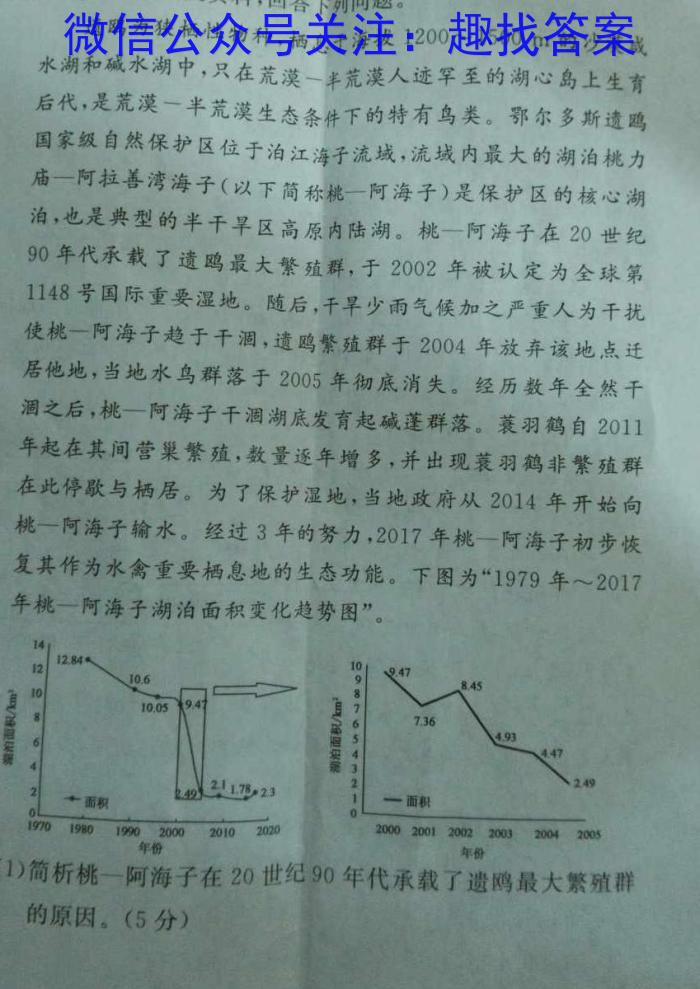 微信公众号关注：趣找答案
料，回答下列问题。
遗鸥为狭栖性物种，栖息于海拔1200 m的沙漠咸
水湖和碱水湖中，只在荒漠—半荒漠人迹罕至的湖心岛上生育
后代，是荒漠—半荒漠生态条件下的特有鸟类。鄂尔多斯遗鸥
国家级自然保护区位于泊江海子流域，流域内最大的湖泊桃力
庙—阿拉善湾海子（以下简称桃—阿海子）是保护区的核心湖
泊，也是典型的半干旱区高原内陆湖。桃—阿海子在20世纪
90年代承载了遗鸥最大繁殖群，于2002年被认定为全球第
1148号国际重要湿地。随后，干旱少雨气候加之严重人为干扰
使桃—阿海子趋于干涸，遗鸥繁殖群于2004年放弃该地点迁
居他地，当地水鸟群落于2005年彻底消失。经历数年全然干
涸之后，桃—阿海子干涸湖底发育起碱蓬群落。蓑羽鹤自2011
年起在其间营巢繁殖，数量逐年增多，并出现蓑羽鹤非繁殖群
在此停歇与栖居。为了保护湿地，当地政府从2014年开始向
桃—阿海子输水。经过3年的努力，2017年桃—阿海子初步恢
复其作为水禽重要栖息地的生态功能。下图为“1979年～2017
年桃—阿海子湖泊面积变化趋势图”。
湖泊面积/km²
14
12
10
8
6
4
2
0
12.84
10.6
10.05
9.47
2.49
2.1
1.78
2.3
面积
1970 1980 1990 2000 2010 2020
年份
湖泊面积/km²
10
9
8
7
6
5
4
3
2
1
0
9.47
7.36
8.45
4.93
4.47
2.49
面积
2000 2001 2002 2003 2004 2005
年份
1)简析桃—阿海子在20世纪90年代承载了遗鸥最大繁殖群
的原因。(5分)